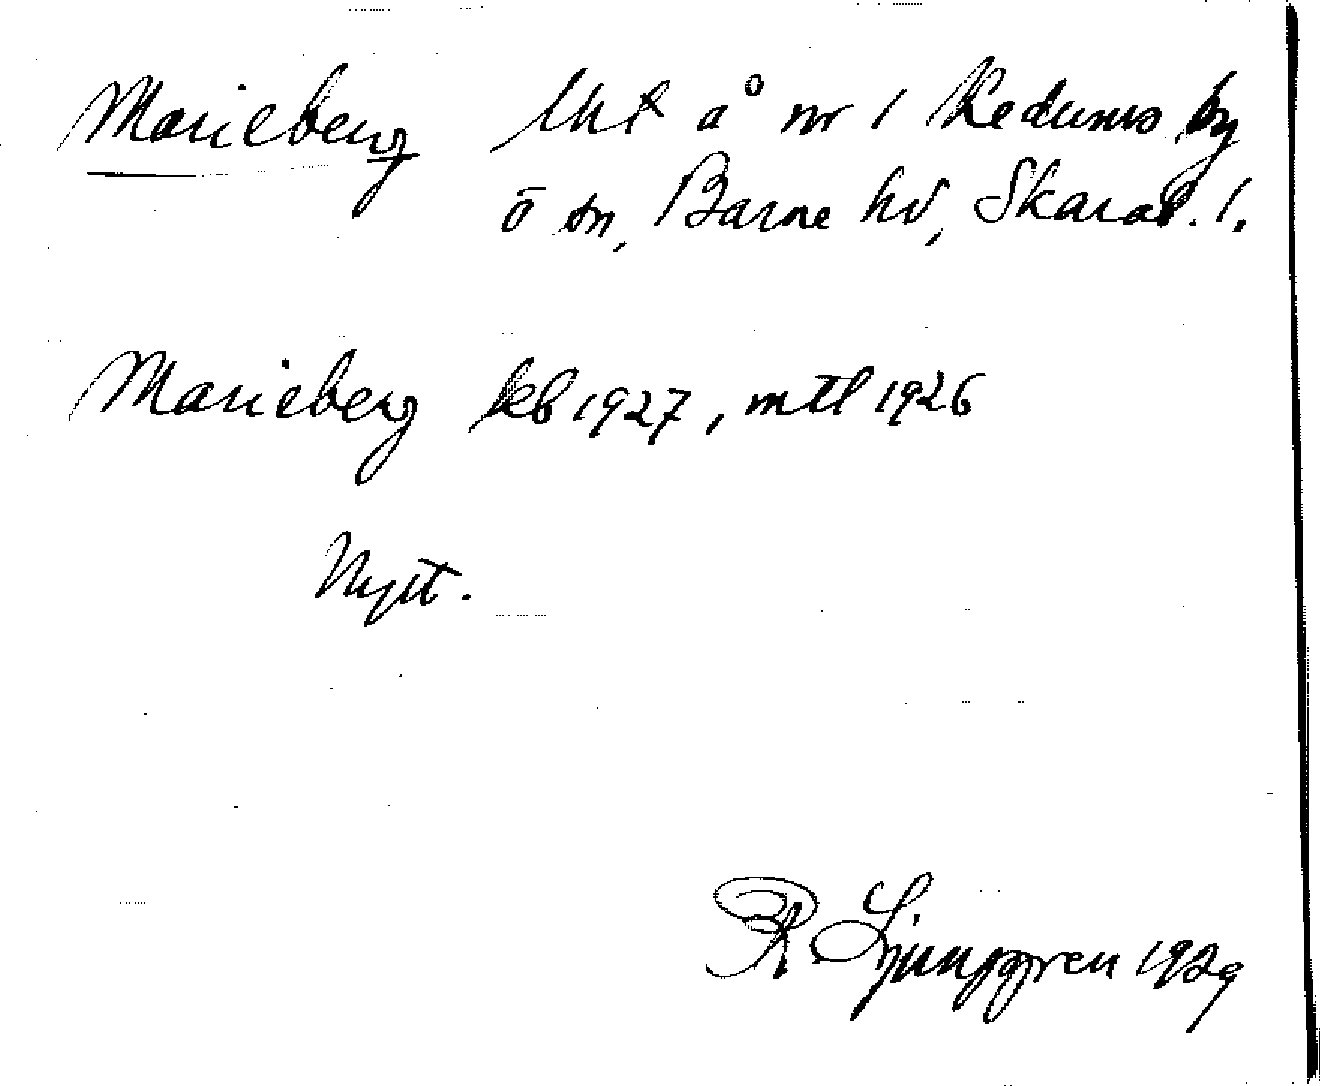 Marieberg lht å nr 1 Redums by
Ö sn, Barne hd, Skarab. l.
Marieberg kb 1927, mtl 1926
Nytt.
R Ljunggren 1929